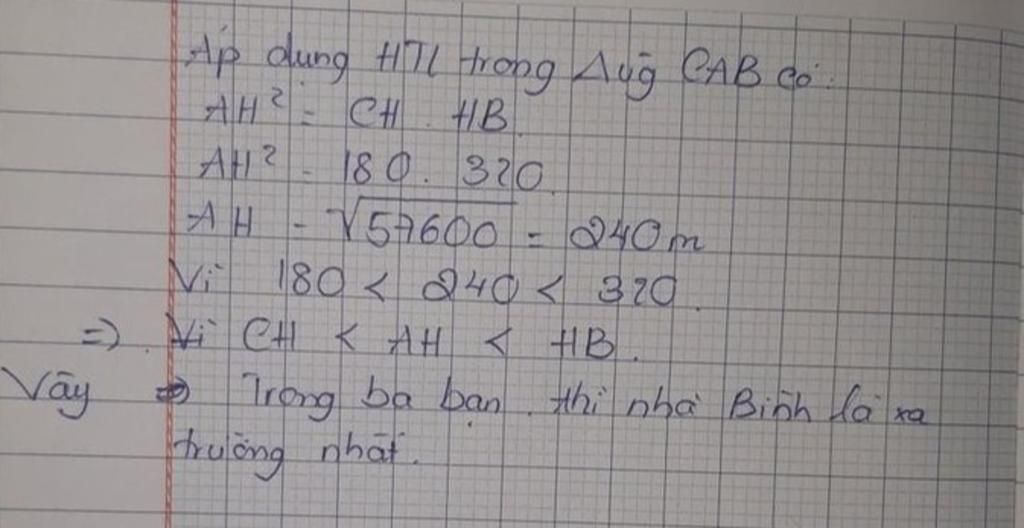 Áp dụng HTL trong Δvg CAB có:
AH² = CH . HB
AH² = 180 . 320
AH = √57600 = 240m
Vì 180 < 240 < 320
=> Vì CH < AH < HB.
Vậy => Trong ba bạn thì nhà Bình là xa
trường nhất.